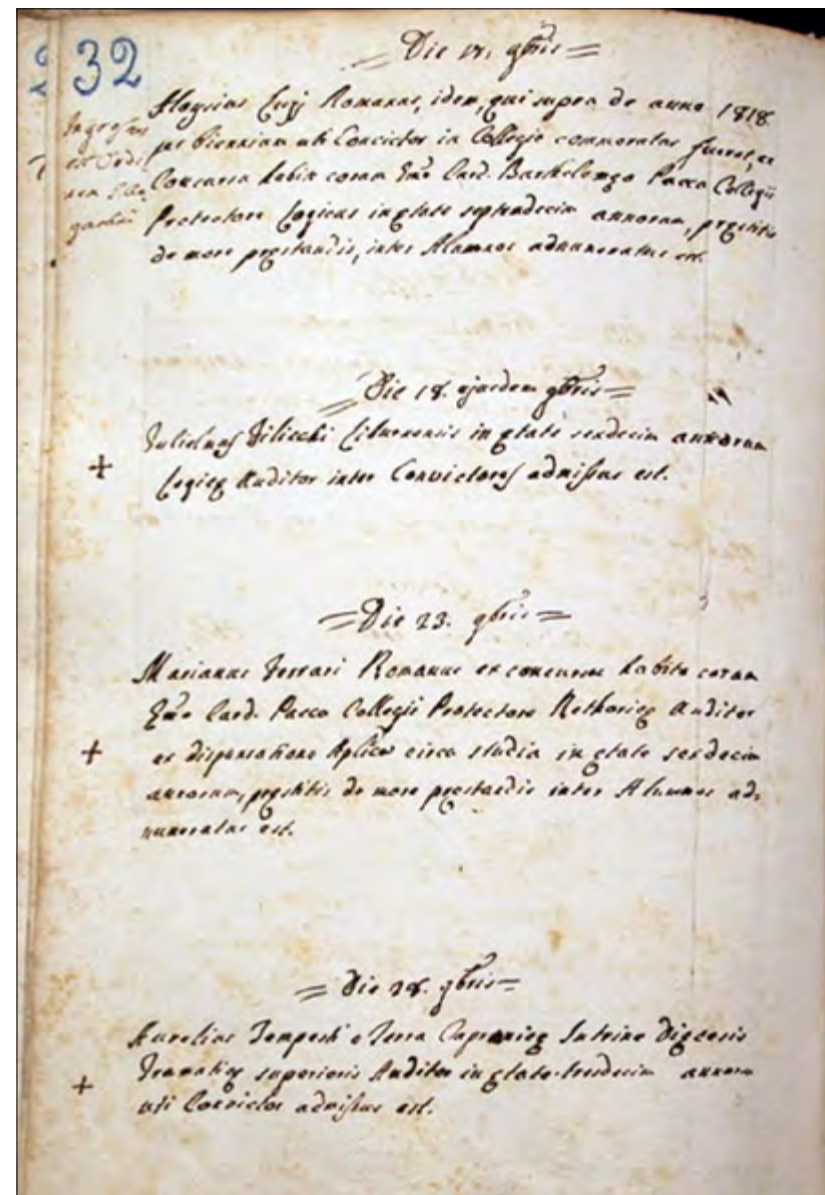 32
= Die 17. 9bris =
Aloysius Lupj Romanus, idem, qui supra de anno 1818
per biennium uti Convictor in Collegio commoratus fuerat, ex
Concursu habito coram Emo Card. Bartholomęo Pacca Collegii
Protectore Logicus in ętate septendecim annorum, pręstitis
de more pręstandis, inter Alumnos adnumeratus est.
Ingressus
est Ordi
nem
= Die 18. ejusdem 9bris =
Julielmus Filicchi Liburnensis in ętate sexdecim annorum
Logicę Auditor inter Convictores admissus est.
= Die 23. 9bris =
Marianus Ferrari Romanus ex concursu habito coram
Emo Card. Pacca Collegii Protectore Rethoricę Auditor
ex dispensatione Aplica circa studia in ętate sexdecim
annorum, pręstitis de more pręstandis inter Alumnos ad-
numeratus est.
= Die 28. 9bris =
Aurelius Tempesti e Terra Capranicę Sutrinę Dięcesis
Gramaticę superioris Auditor in ętate tresdecim annorum
uti Convictor admissus est.